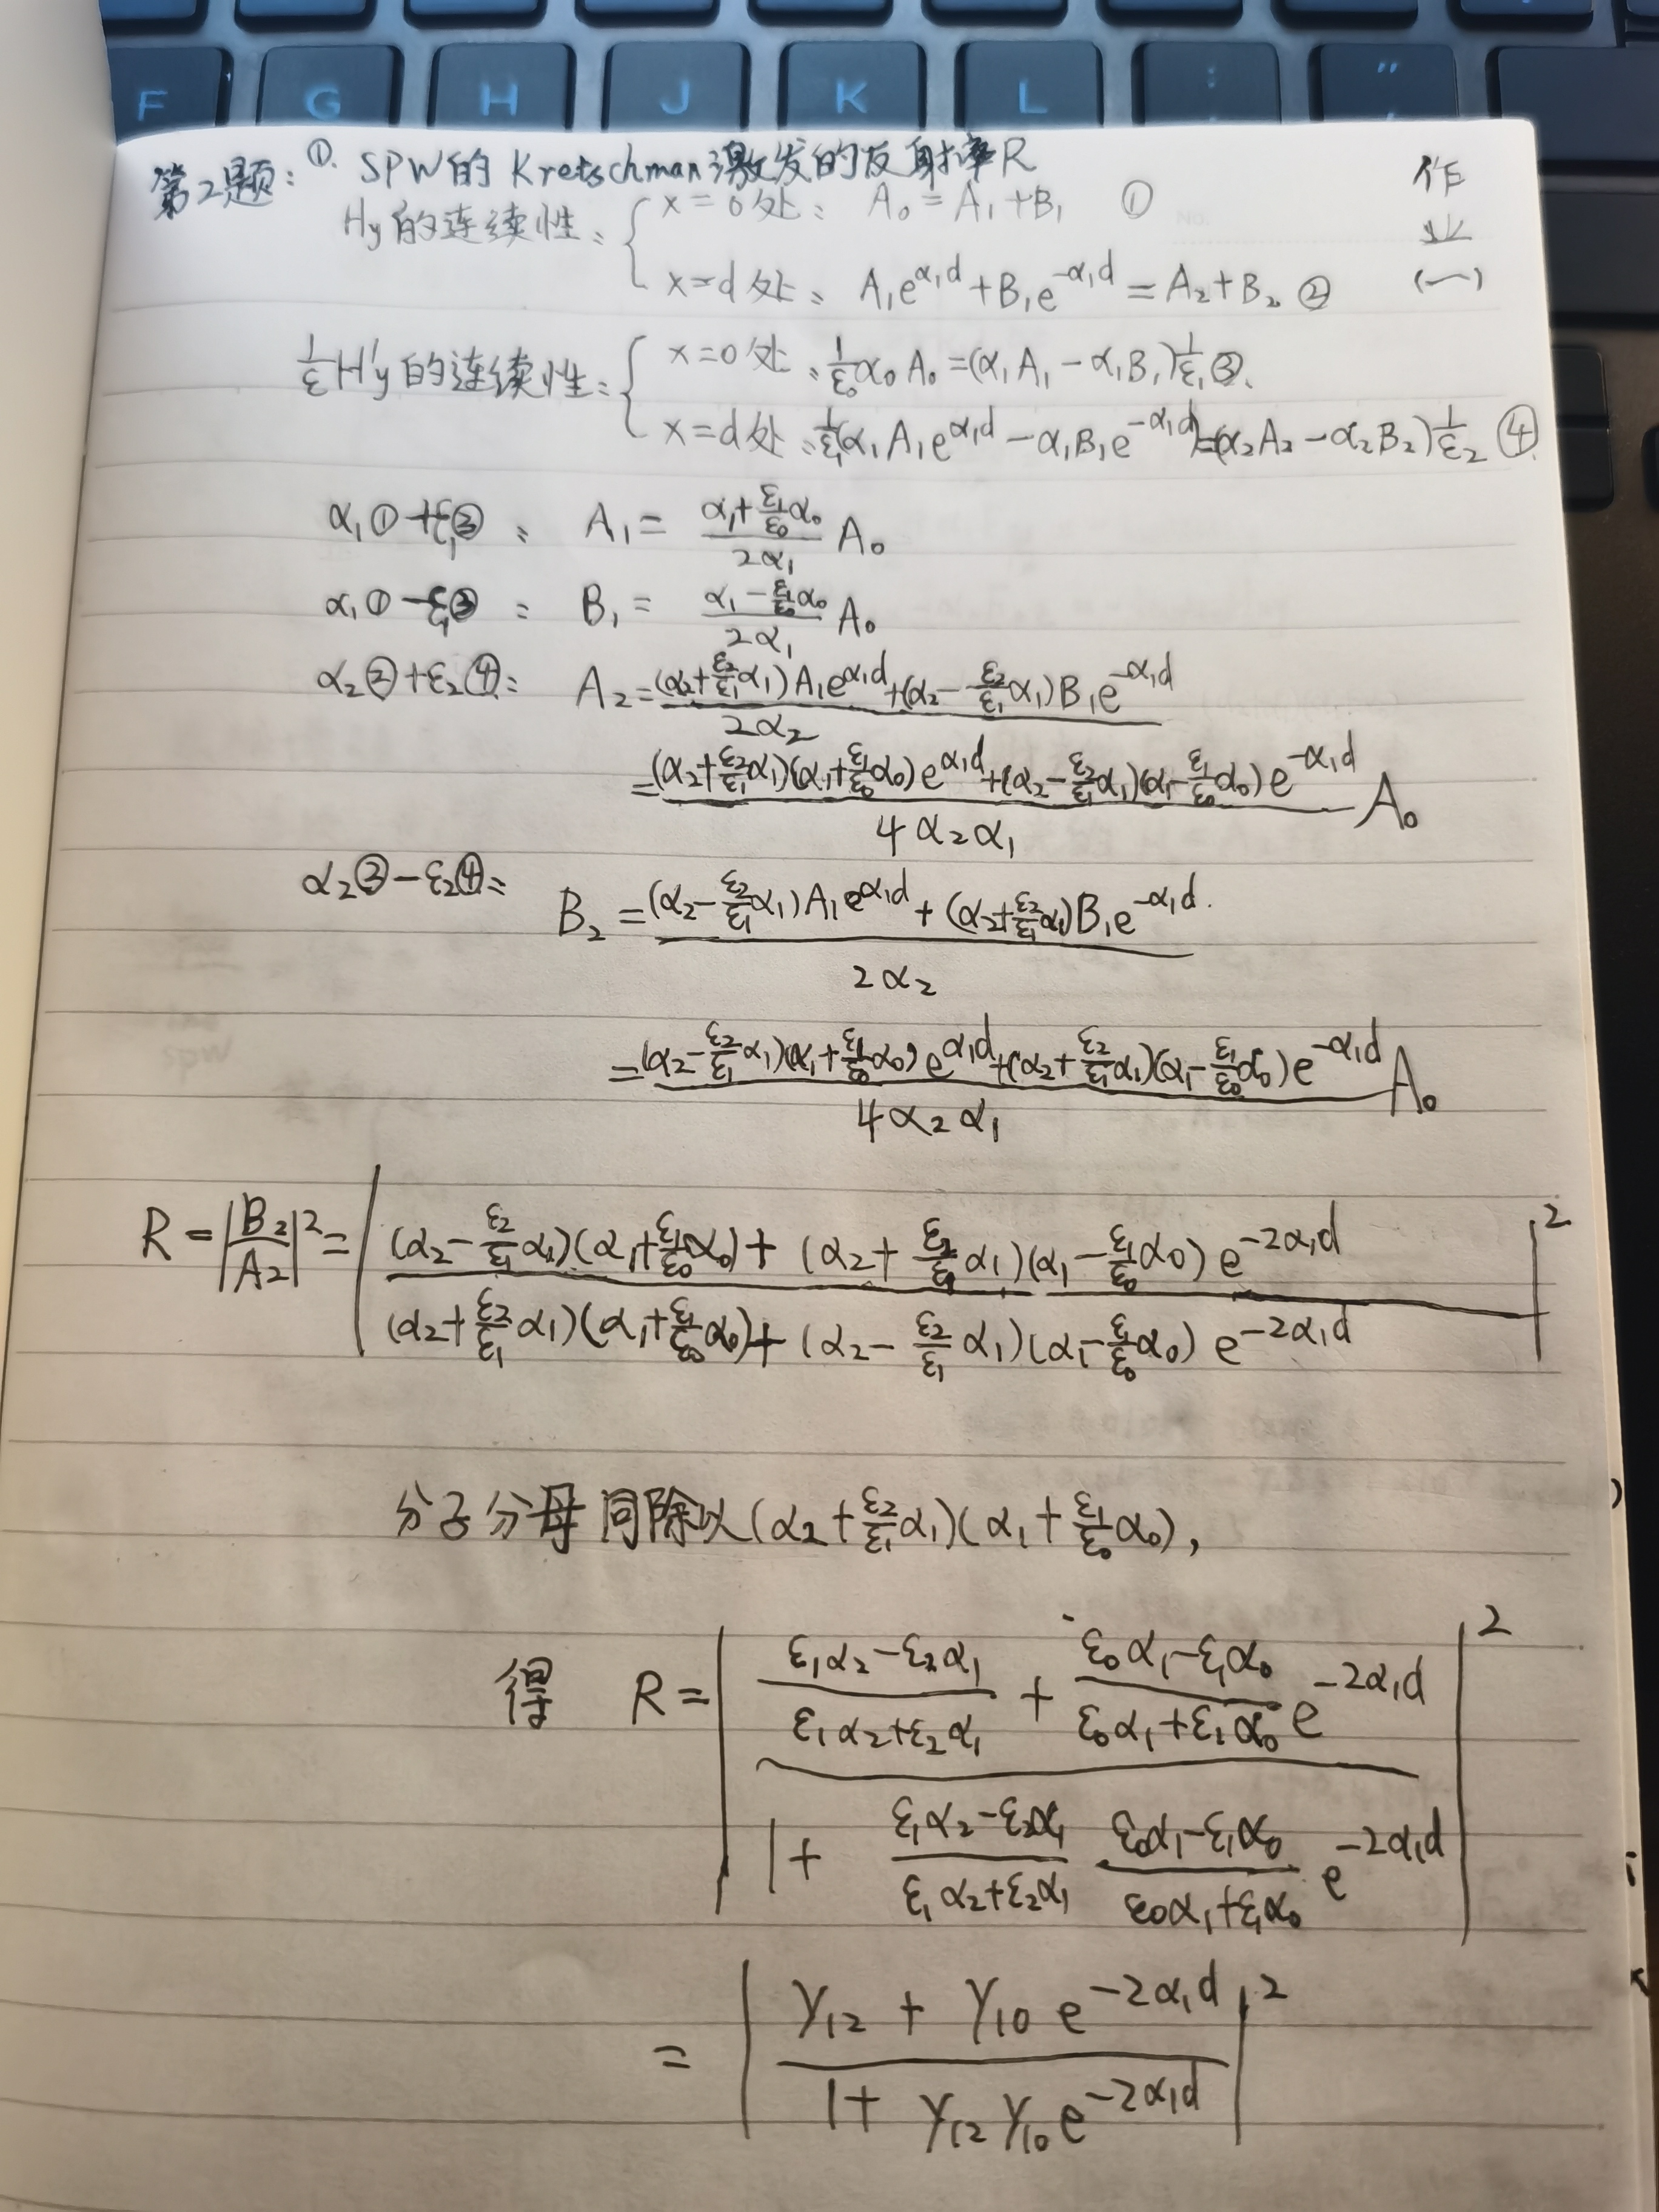 F G H J K L : ; " '
第2题: ①. SPW的Kretschman激发的反射率R
作业(一)
Hy的连续性: { x=0处: A₀=A₁+B₁ ①
x=d处: A₁e^{α₁d}+B₁e^{-α₁d}=A₂+B₂ ②
1/ε H'y的连续性: { x=0处: 1/ε₀ α₀A₀=(α₁A₁-α₁B₁)1/ε₁ ③.
x=d处: 1/ε₁(α₁A₁e^{α₁d}-α₁B₁e^{-α₁d})=(α₂A₂-α₂B₂)1/ε₂ ④
α₁①+ε₁③: A₁= (α₁+ε₁/ε₀ α₀)/(2α₁) A₀
α₁①-ε₁③: B₁= (α₁-ε₁/ε₀ α₀)/(2α₁) A₀
α₂②+ε₂④: A₂=((α₂+ε₂/ε₁ α₁)A₁e^{α₁d}+(α₂-ε₂/ε₁ α₁)B₁e^{-α₁d})/(2α₂)
=((α₂+ε₂/ε₁ α₁)(α₁+ε₁/ε₀ α₀)e^{α₁d}+(α₂-ε₂/ε₁ α₁)(α₁-ε₁/ε₀ α₀)e^{-α₁d})/(4α₂α₁) A₀
α₂③-ε₂④: B₂=((α₂-ε₂/ε₁ α₁)A₁e^{α₁d}+(α₂+ε₂/ε₁ α₁)B₁e^{-α₁d})/(2α₂)
=((α₂-ε₂/ε₁ α₁)(α₁+ε₁/ε₀ α₀)e^{α₁d}+(α₂+ε₂/ε₁ α₁)(α₁-ε₁/ε₀ α₀)e^{-α₁d})/(4α₂α₁) A₀
R=|B₂/A₂|²=|((α₂-ε₂/ε₁ α₁)(α₁+ε₁/ε₀ α₀)+(α₂+ε₂/ε₁ α₁)(α₁-ε₁/ε₀ α₀)e^{-2α₁d})/((α₂+ε₂/ε₁ α₁)(α₁+ε₁/ε₀ α₀)+(α₂-ε₂/ε₁ α₁)(α₁-ε₁/ε₀ α₀)e^{-2α₁d})|²
分子分母同除以(α₂+ε₂/ε₁ α₁)(α₁+ε₁/ε₀ α₀),
得 R=|((ε₁α₂-ε₂α₁)/(ε₁α₂+ε₂α₁)+(ε₀α₁-ε₁α₀)/(ε₀α₁+ε₁α₀)e^{-2α₁d})/(1+(ε₁α₂-ε₂α₁)/(ε₁α₂+ε₂α₁) (ε₀α₁-ε₁α₀)/(ε₀α₁+ε₁α₀) e^{-2α₁d})|²
=|(γ₁₂+γ₁₀e^{-2α₁d})/(1+γ₁₂γ₁₀e^{-2α₁d})|²